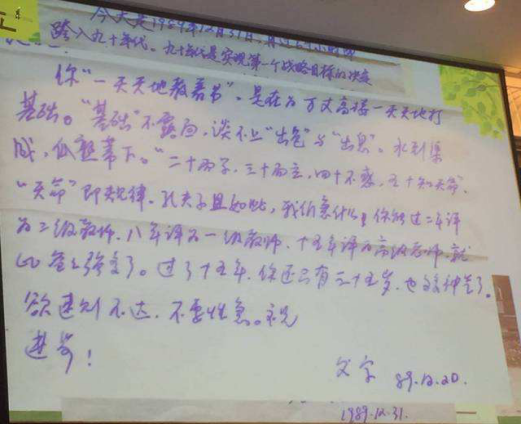 今天是1989年12月31日,
跨入九十年代。九十年代是实现第一个战略目标的决定
你"一天天地教着书"。是在为万丈高楼一天天地打
基础。"基础"不牢固,谈不上"出色"与"出息"。水到渠
成,瓜熟蒂下。"二十而学,三十而立,四十不惑,五十知天命。
"天命"即规律。孔夫子且如此,我们急什么!你能过二年评
为二级教师,八年评为一级教师,十五年评为高级教师,就
了。过了十五年,你还只有三十五岁,也
欲速则不达,不要性急。祝
进步!
父字 89.12.20.
1989.12.31.